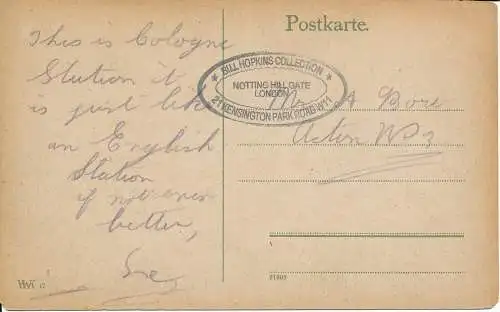 This is Cologne
Station it
is just like
an English
Station
if not even
better,
Postkarte.
BILL HOPKINS COLLECTION
NOTTING HILL GATE
LONDON
21 KENSINGTON PARK ROAD W11
Mr A
Acton W 3
21809